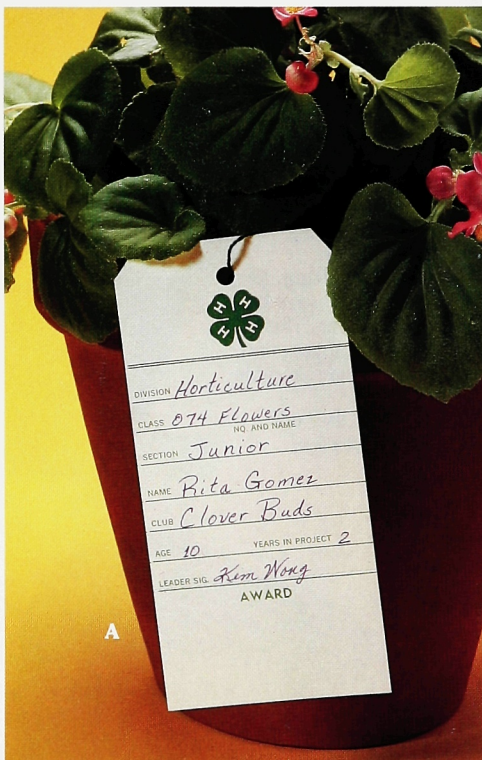 H H
H H
DIVISION Horticulture
CLASS 074 Flowers
NO. AND NAME
SECTION Junior
NAME Rita Gomez
CLUB Clover Buds
AGE 10 YEARS IN PROJECT 2
LEADER SIG. Kim Wong
AWARD
A